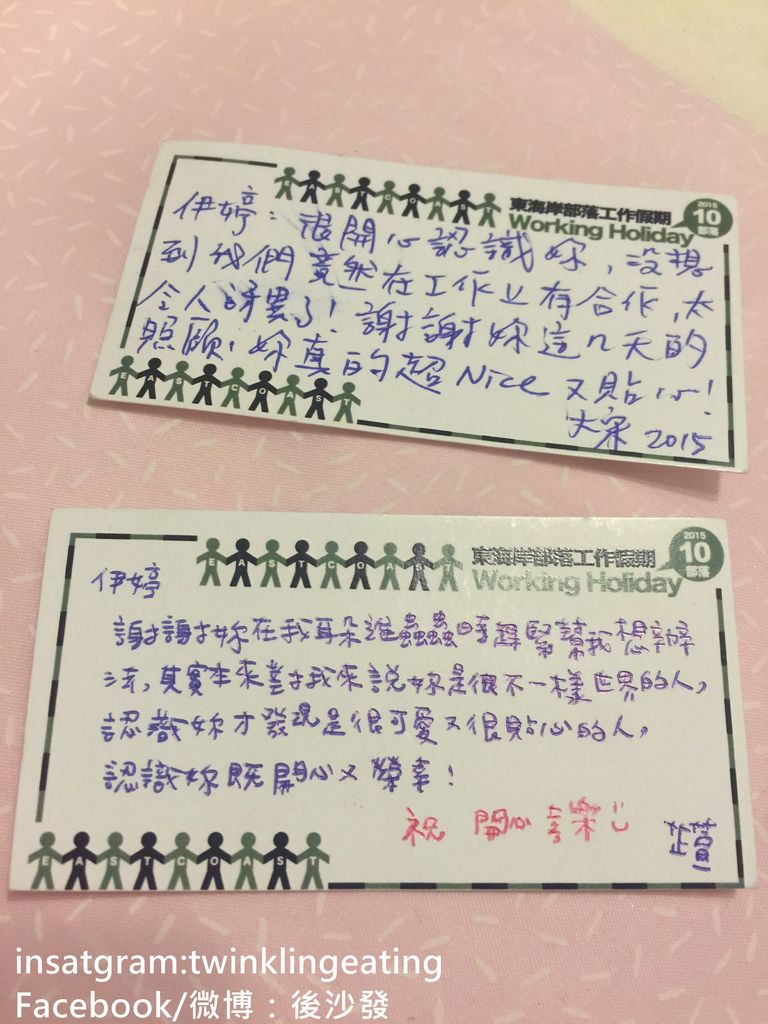 東海岸部落工作假期
Working Holiday
2015
10
部落
伊婷：很開心認識妳，没想
到我們竟然在工作上有合作，太
令人訝異了！謝謝妳這几天的
照顧，妳真的超Nice又貼心！
大宗 2015
EASTCOAST
EASTCOAST
東海岸部落工作假期
Working Holiday
2015
10
部落
EASTCOAST
伊婷
謝謝妳在我耳朵進蟲蟲時趕緊幫我想辦
法，其實本來對我來說妳是很不一樣世界的人，
認識妳才發現是很可愛又很貼心的人，
認識妳既開心又榮幸！
祝 開心
EASTCOAST
insatgram:twinklingeating
Facebook/微博：後沙發